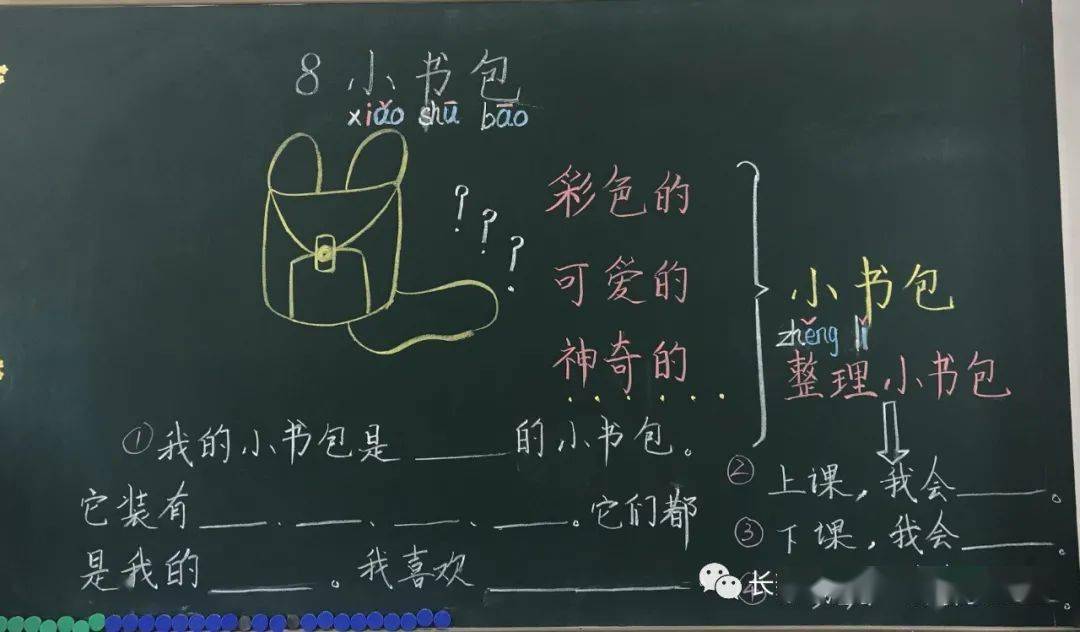 8 小书包
xiǎo shū bāo
? ? ?
彩色的
可爱的
神奇的
......
小书包
zhěng lǐ
整理小书包
①我的小书包是____的小书包。
它装有____、____、____、____。它们都
是我的____。我喜欢________
②上课，我会____。
③下课，我会____。
长